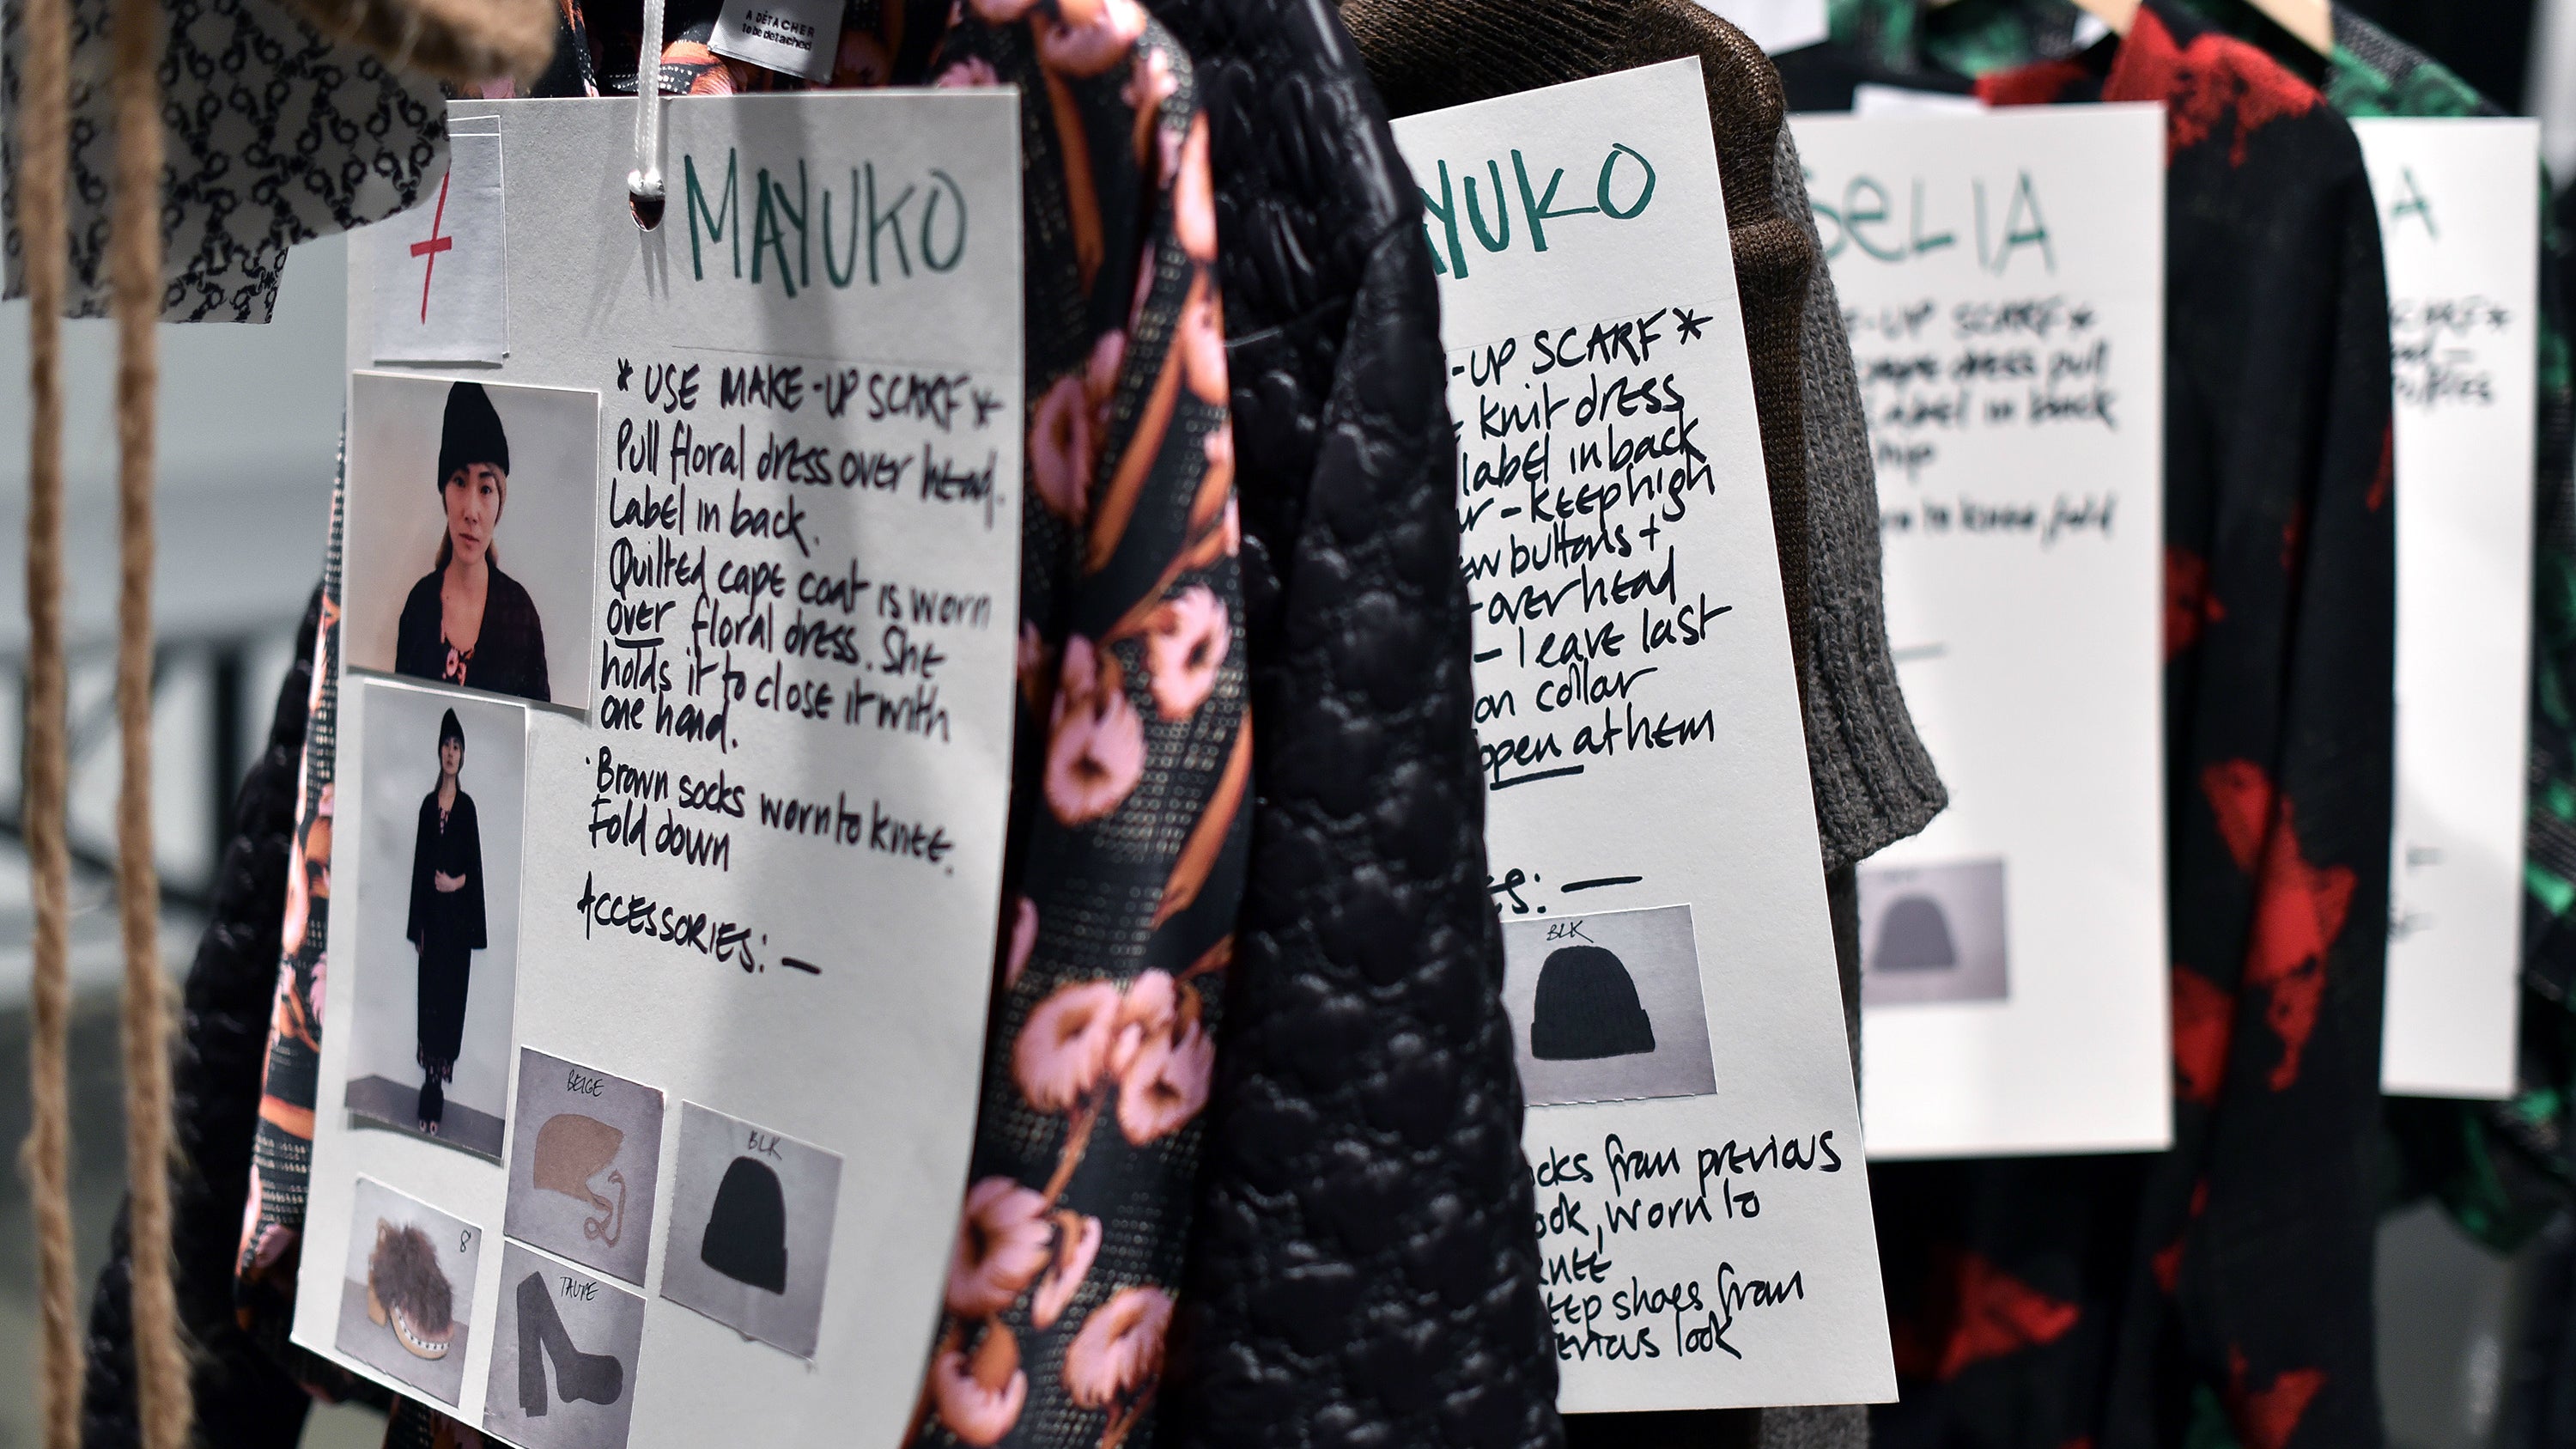 A DÉTACHER
to be detached
MAYUKO
* USE MAKE-UP SCARF *
Pull floral dress over head.
Label in back.
Quilted cape coat is worn
over floral dress. She
holds it to close it with
one hand.
Brown socks worn to knee.
Fold down
ACCESSORIES: —
BEIGE
BLK
8
TAUPE
YUKO
-UP SCARF *
knit dress
label in back
- keep high
buttons +
overhead
- leave last
on collar
open at hem
: —
BLK
from previous
, worn to
shoes from
look
SELIA
-UP SCARF *
dress pull
label in back
hip
to knee, fold
A